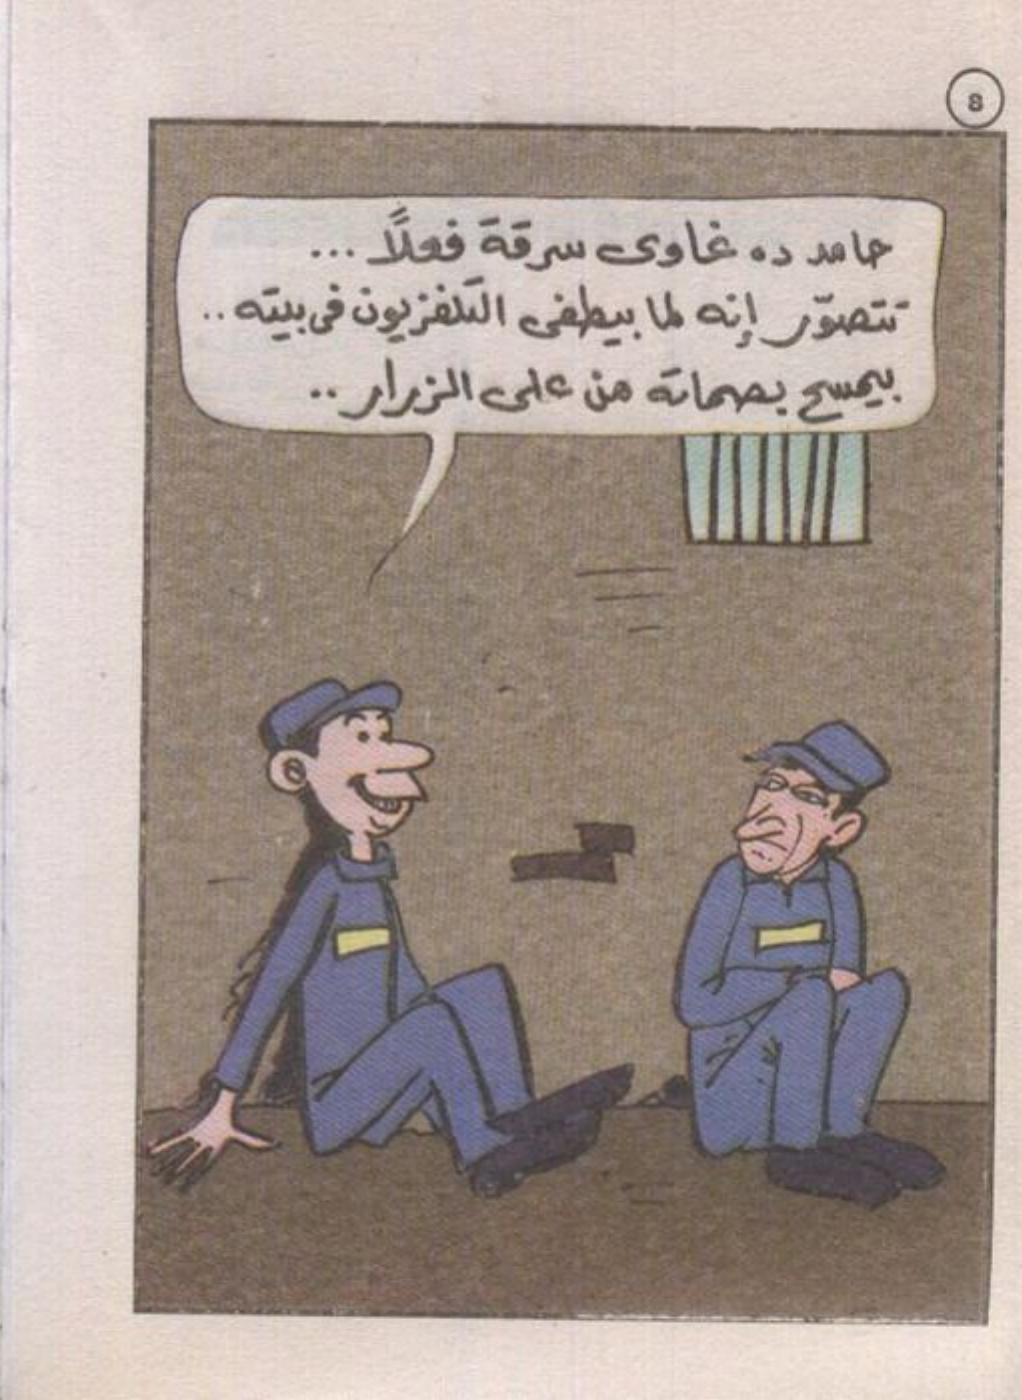 8
حامد ده غاوى سرقة فعلاً...
تتصوّر إنه لما بيطفى التلفزيون فى بيته..
بيمسح بصماته من على الزرار..